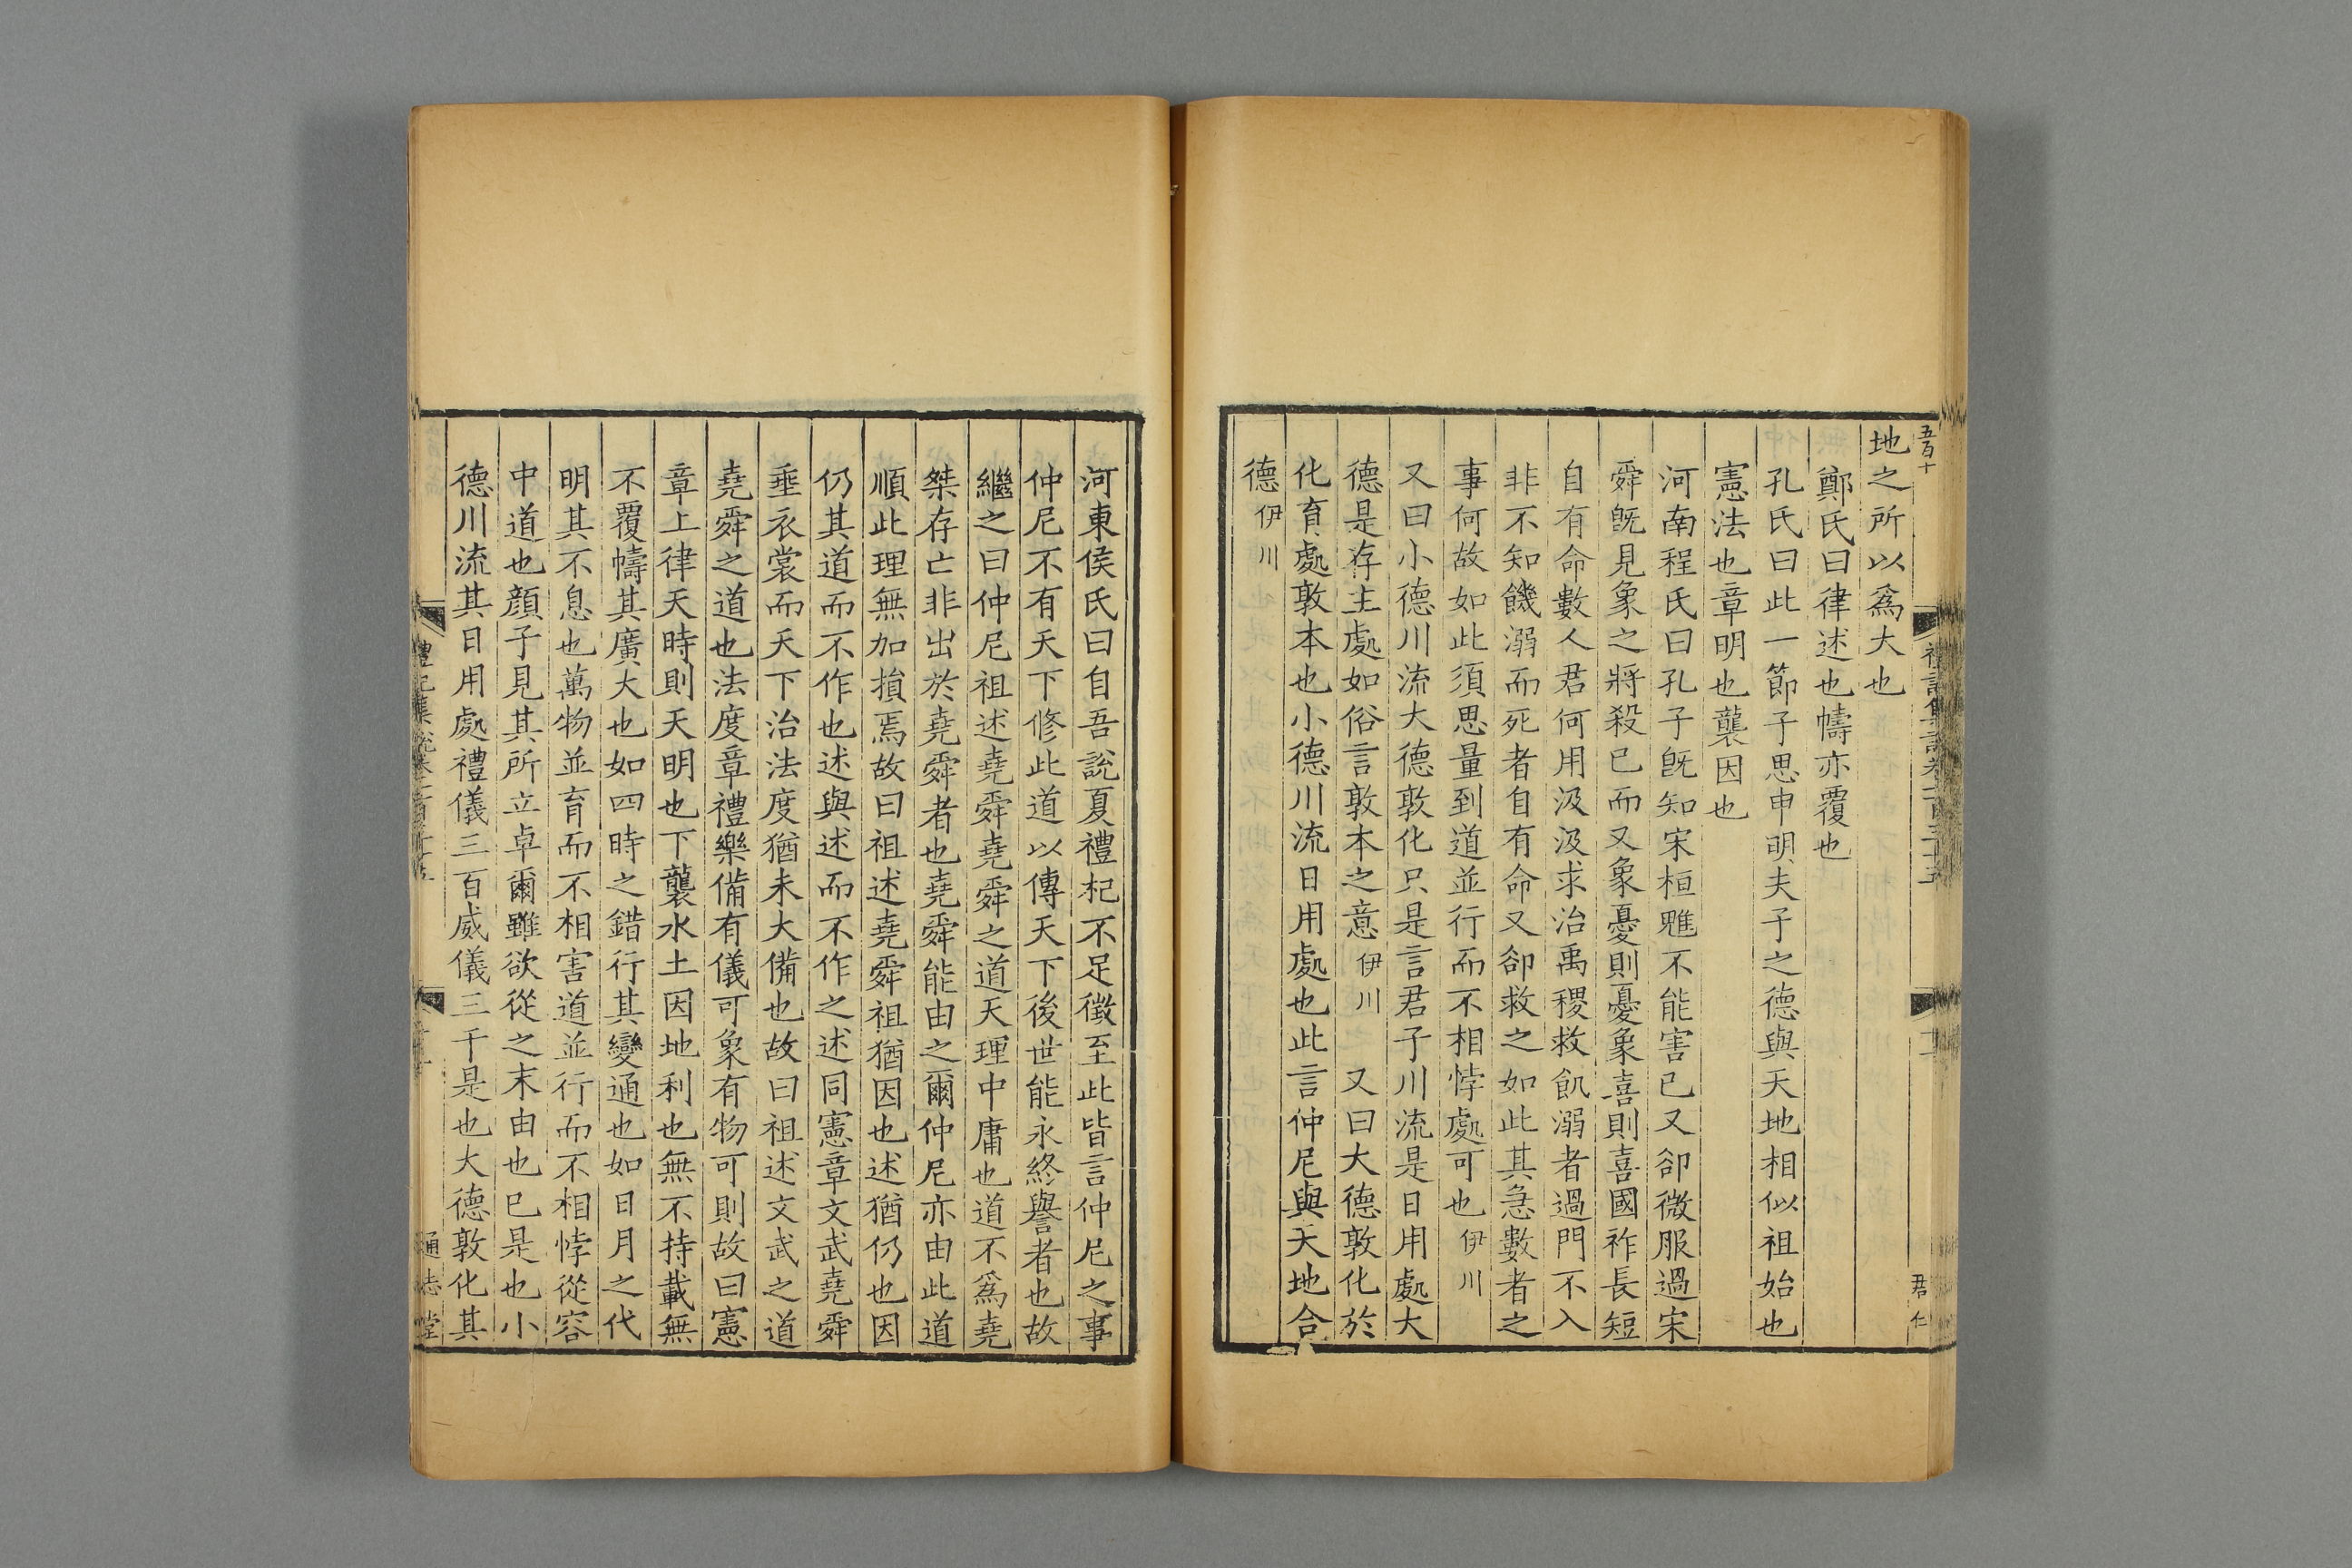 五百十
君仁
地之所以爲大也
鄭氏曰律述也幬亦覆也
孔氏曰此一節子思申明夫子之德與天地相似祖始也
憲法也章明也襲因也
河南程氏曰孔子旣知宋桓魋不能害己又卻微服過宋
舜旣見象之將殺己而又象憂則憂象喜則喜國祚長短
自有命數人君何用汲汲求治禹稷救飢溺者過門不入
非不知饑溺而死者自有命又卻救之如此其急數者之
事何故如此須思量到道並行而不相悖處可也伊川
又曰小德川流大德敦化只是言君子川流是日用處大
德是存主處如俗言敦本之意伊川 又曰大德敦化於
化育處敦本也小德川流日用處也此言仲尼與天地合
德伊川
河東侯氏曰自吾說夏禮杞不足徵至此皆言仲尼之事
仲尼不有天下修此道以傳天下後世能永終譽者也故
繼之曰仲尼祖述堯舜堯舜之道天理中庸也道不爲堯
桀存亡非出於堯舜者也堯舜能由之爾仲尼亦由此道
順此理無加損焉故曰祖述堯舜祖猶因也述猶仍也因
仍其道而不作也述與述而不作之述同憲章文武堯舜
垂衣裳而天下治法度猶未大備也故曰祖述文武之道
堯舜之道也法度章禮樂備有儀可象有物可則故曰憲
章上律天時則天明也下襲水土因地利也無不持載無
不覆幬其廣大也如四時之錯行其變通也如日月之代
明其不息也萬物並育而不相害道並行而不相悖從容
中道也顏子見其所立卓爾雖欲從之末由也已是也小
德川流其日用處禮儀三百威儀三千是也大德敦化其
通志堂